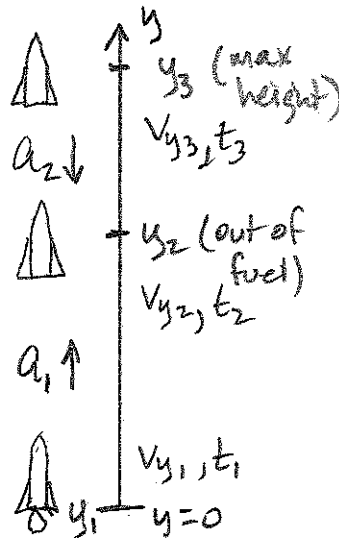 y
y₃ (max
height)
v_y₃, t₃
a₂↓
y₂ (out of
fuel)
v_y₂, t₂
a₁↑
v_y₁, t₁
y₁ y=0